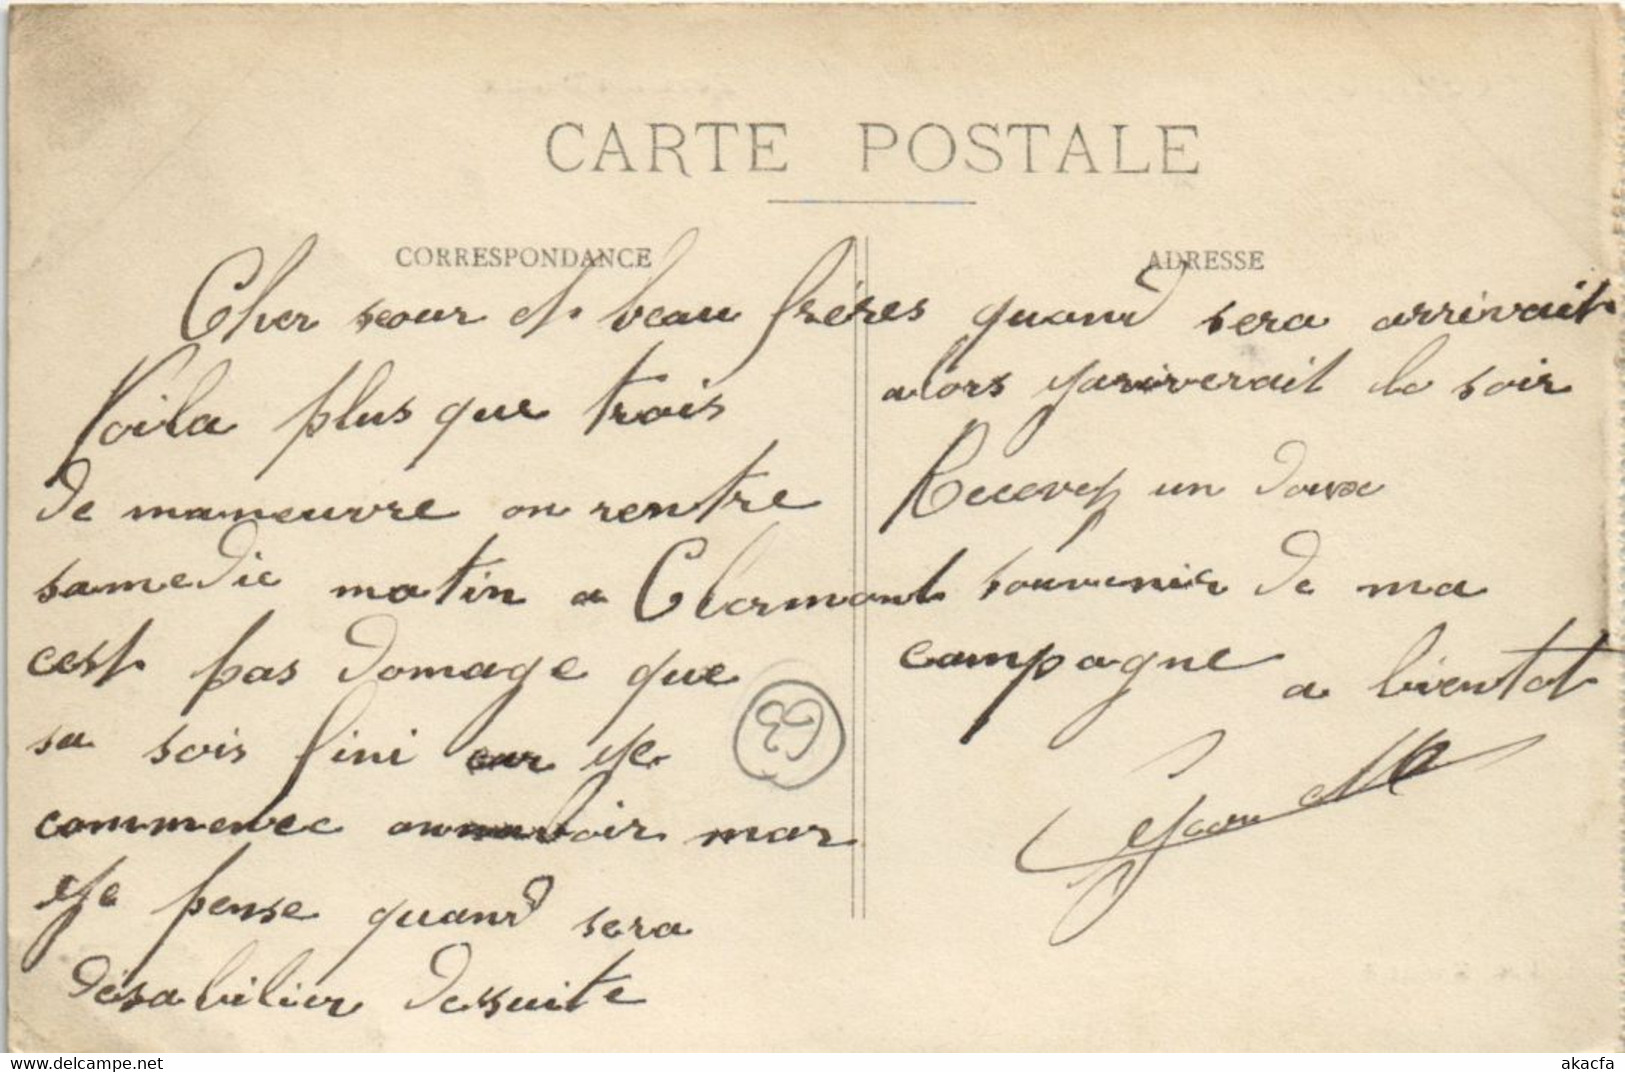 CARTE POSTALE
CORRESPONDANCE
ADRESSE
Cher seour et beau fréres
Voila plus que trois
de maneuvre on rentre
samedie matin a Clermont
cest pas domage que
sa sois fini car je
commence
avoir mar
je pense quand sera
désabilier dessuite
63
quand sera arrivait
alors jariverait le soir
Recevez un doux
souvenir de ma
campagne a bientot
Jean
akacfa